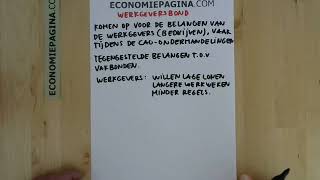 ECONOMIEPAGINA.COM
ECONOMIEPAGINA.COM
WERKGEVERSBOND
KOMEN OP VOOR DE BELANGEN VAN
DE WERKGEVERS (BEDRIJVEN), VAAK
TIJDENS DE CAO-ONDERHANDELINGEN
TEGENGESTELDE BELANGEN T.O.V
VAKBONDEN.
WERKGEVERS: WILLEN LAGE LONEN
LANGERE WERKWEKEN
MINDER REGELS.